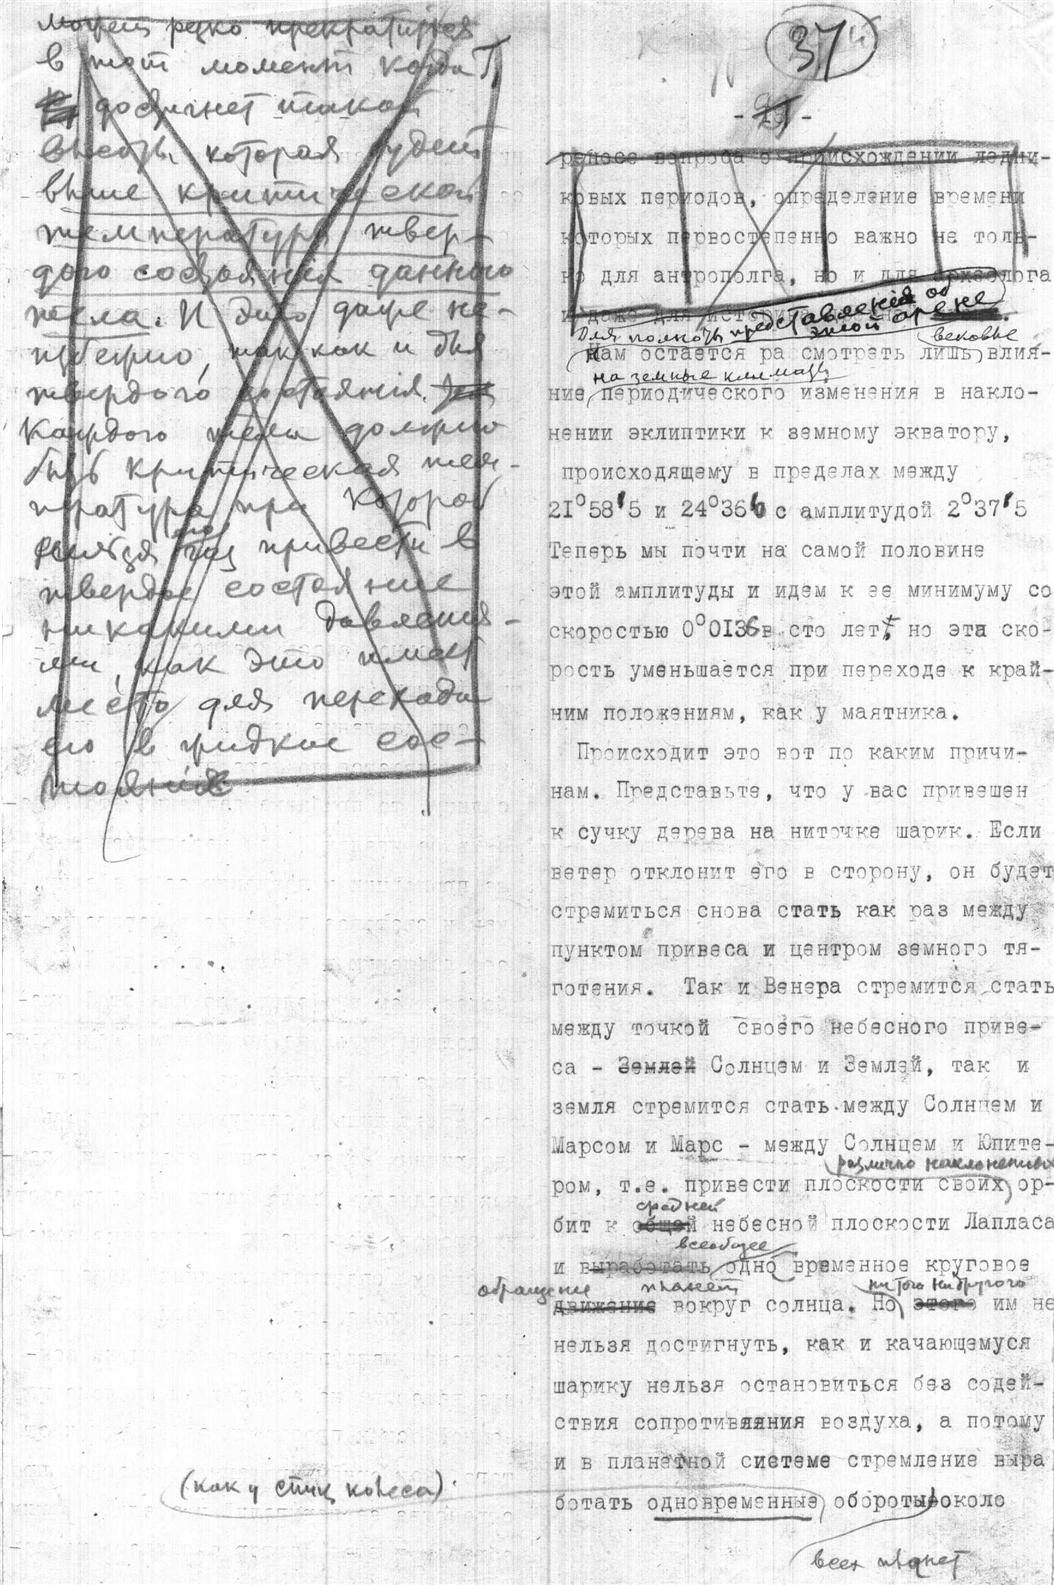 может резко прекратиться
в тот момент когда Т
достигнет такой
высоты, которая будет
выше критической
температуры твер-
дого состояния данного
тела. И это даже не-
избежно, так как и для
твердого состояния
каждого тела должно
быть критическая тем-
пература при которой
нельзя газ привести в
твердое состояние
никакими давления-
ми, как это имеет
место для перехода
его в жидкое сос-
тояние
37
реносе вопроса о происхождении ледни-
ковых периодов, определение времени
которых первостепенно важно не толь-
но для антрополга, но и для археолога
и даже для
Для полноты представления об
этой арене
вековые
Нам остается ра смотреть лишь влия-
на земные климаты
ние периодического изменения в накло-
нении эклиптики к земному экватору,
происходящему в пределах между
21°58'5 и 24°36'6 с амплитудой 2°37'5
Теперь мы почти на самой половине
этой амплитуды и идем к ее минимуму со
скоростью 0°0136 в сто лет, но эта ско-
рость уменьшается при переходе к край-
ним положениям, как у маятника.
Происходит это вот по каким причи-
нам. Представьте, что у вас привешен
к сучку дерева на ниточке шарик. Если
ветер отклонит его в сторону, он будет
стремиться снова стать как раз между
пунктом привеса и центром земного тя-
готения. Так и Венера стремится стать
между точкой своего небесного приве-
са - Землей Солнцем и Землей, так и
земля стремится стать между Солнцем и
Марсом и Марс - между Солнцем и Юпите-
различно наклоненных
ром, т.е. привести плоскости своих ор-
средней
бит к общей небесной плоскости Лапласа
всеобщее
и выработать одно временное круговое
обращение планет ни того ни другого
движение вокруг солнца. Но этого им не
нельзя достигнуть, как и качающемуся
шарику нельзя остановиться без содей-
ствия сопротивляния воздуха, а потому
и в планетной системе стремление выра
(как у спиц колеса)
ботать одновременные обороты около
всех планет